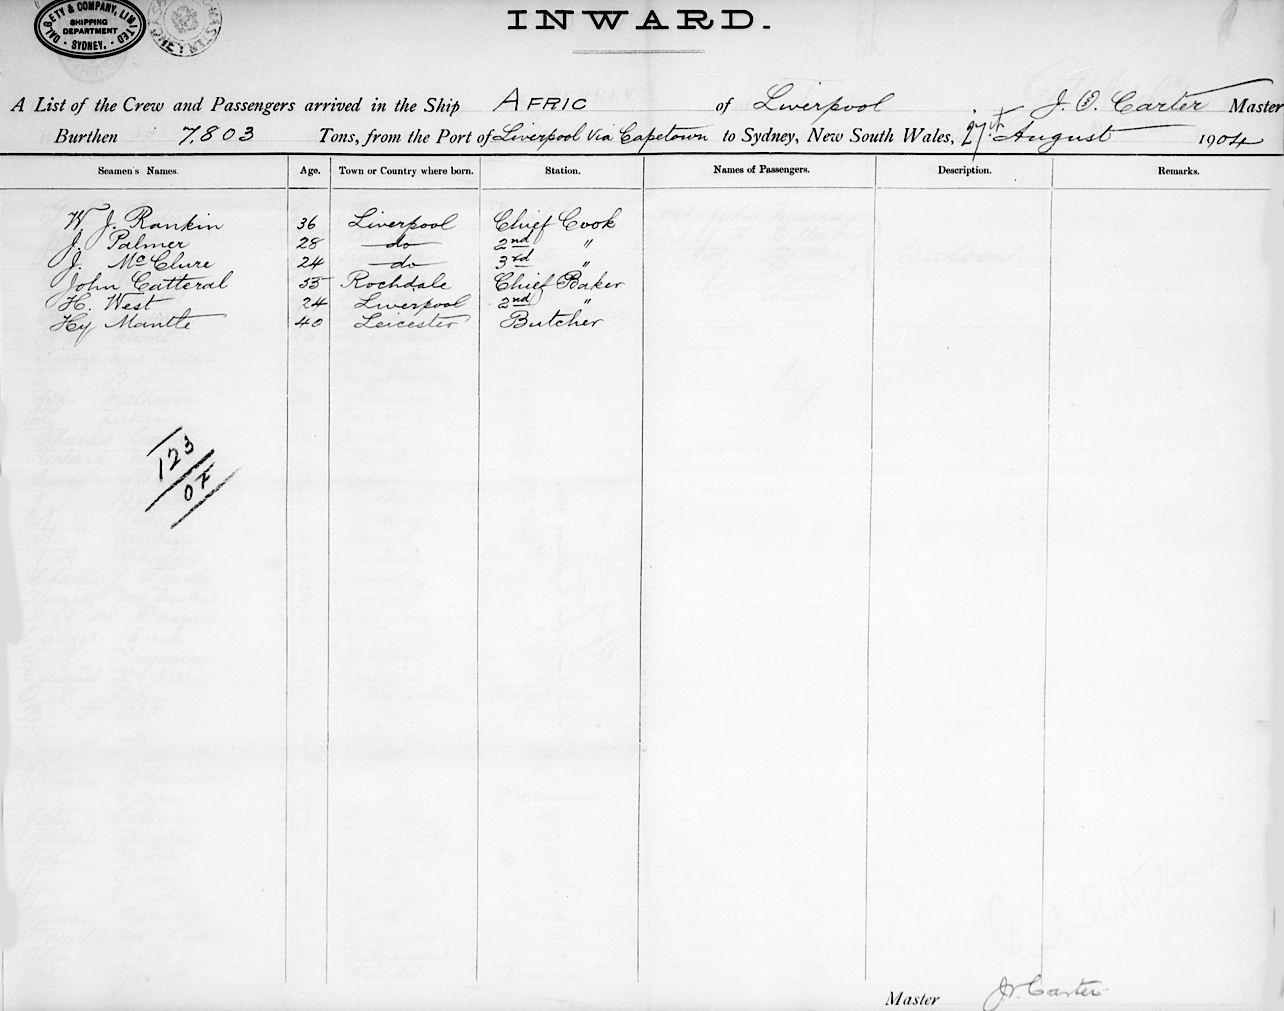 DALGETY & COMPANY, LIMITED
SHIPPING
DEPARTMENT
· SYDNEY. ·
INWARD.
A List of the Crew and Passengers arrived in the Ship AFRIC of Liverpool J. O. Carter Master
Burthen 7,803 Tons, from the Port of Liverpool via Capetown to Sydney, New South Wales, 27th August 1904
Seamen's Names. Age. Town or Country where born. Station. Names of Passengers. Description. Remarks.
W. J. Rankin 36 Liverpool Chief Cook
J. Palmer 28 do 2nd "
J. McClure 24 do 3rd "
John Catteral 35 Rochdale Chief Baker
H. West 24 Liverpool 2nd "
Hy Mantle 40 Leicester Butcher
123
07
Master J. O. Carter